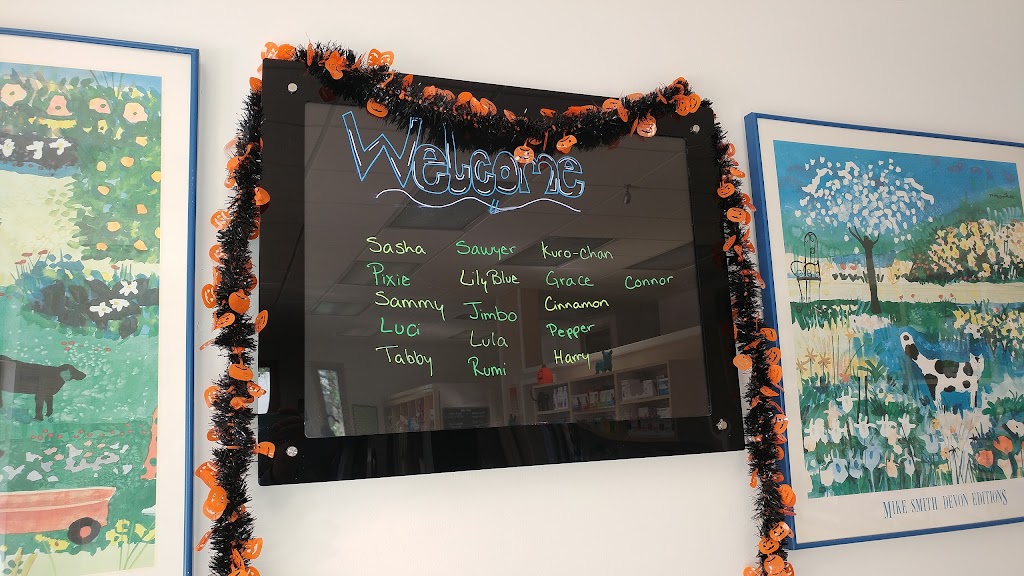 Welcome
Sasha Sawyer Kuro-Chan
Pixie LilyBlue Grace Connor
Sammy Jimbo Cinnamon
Luci Lula Pepper
Tabby Rumi Harry
MIKE SMITH DEVON EDITIONS